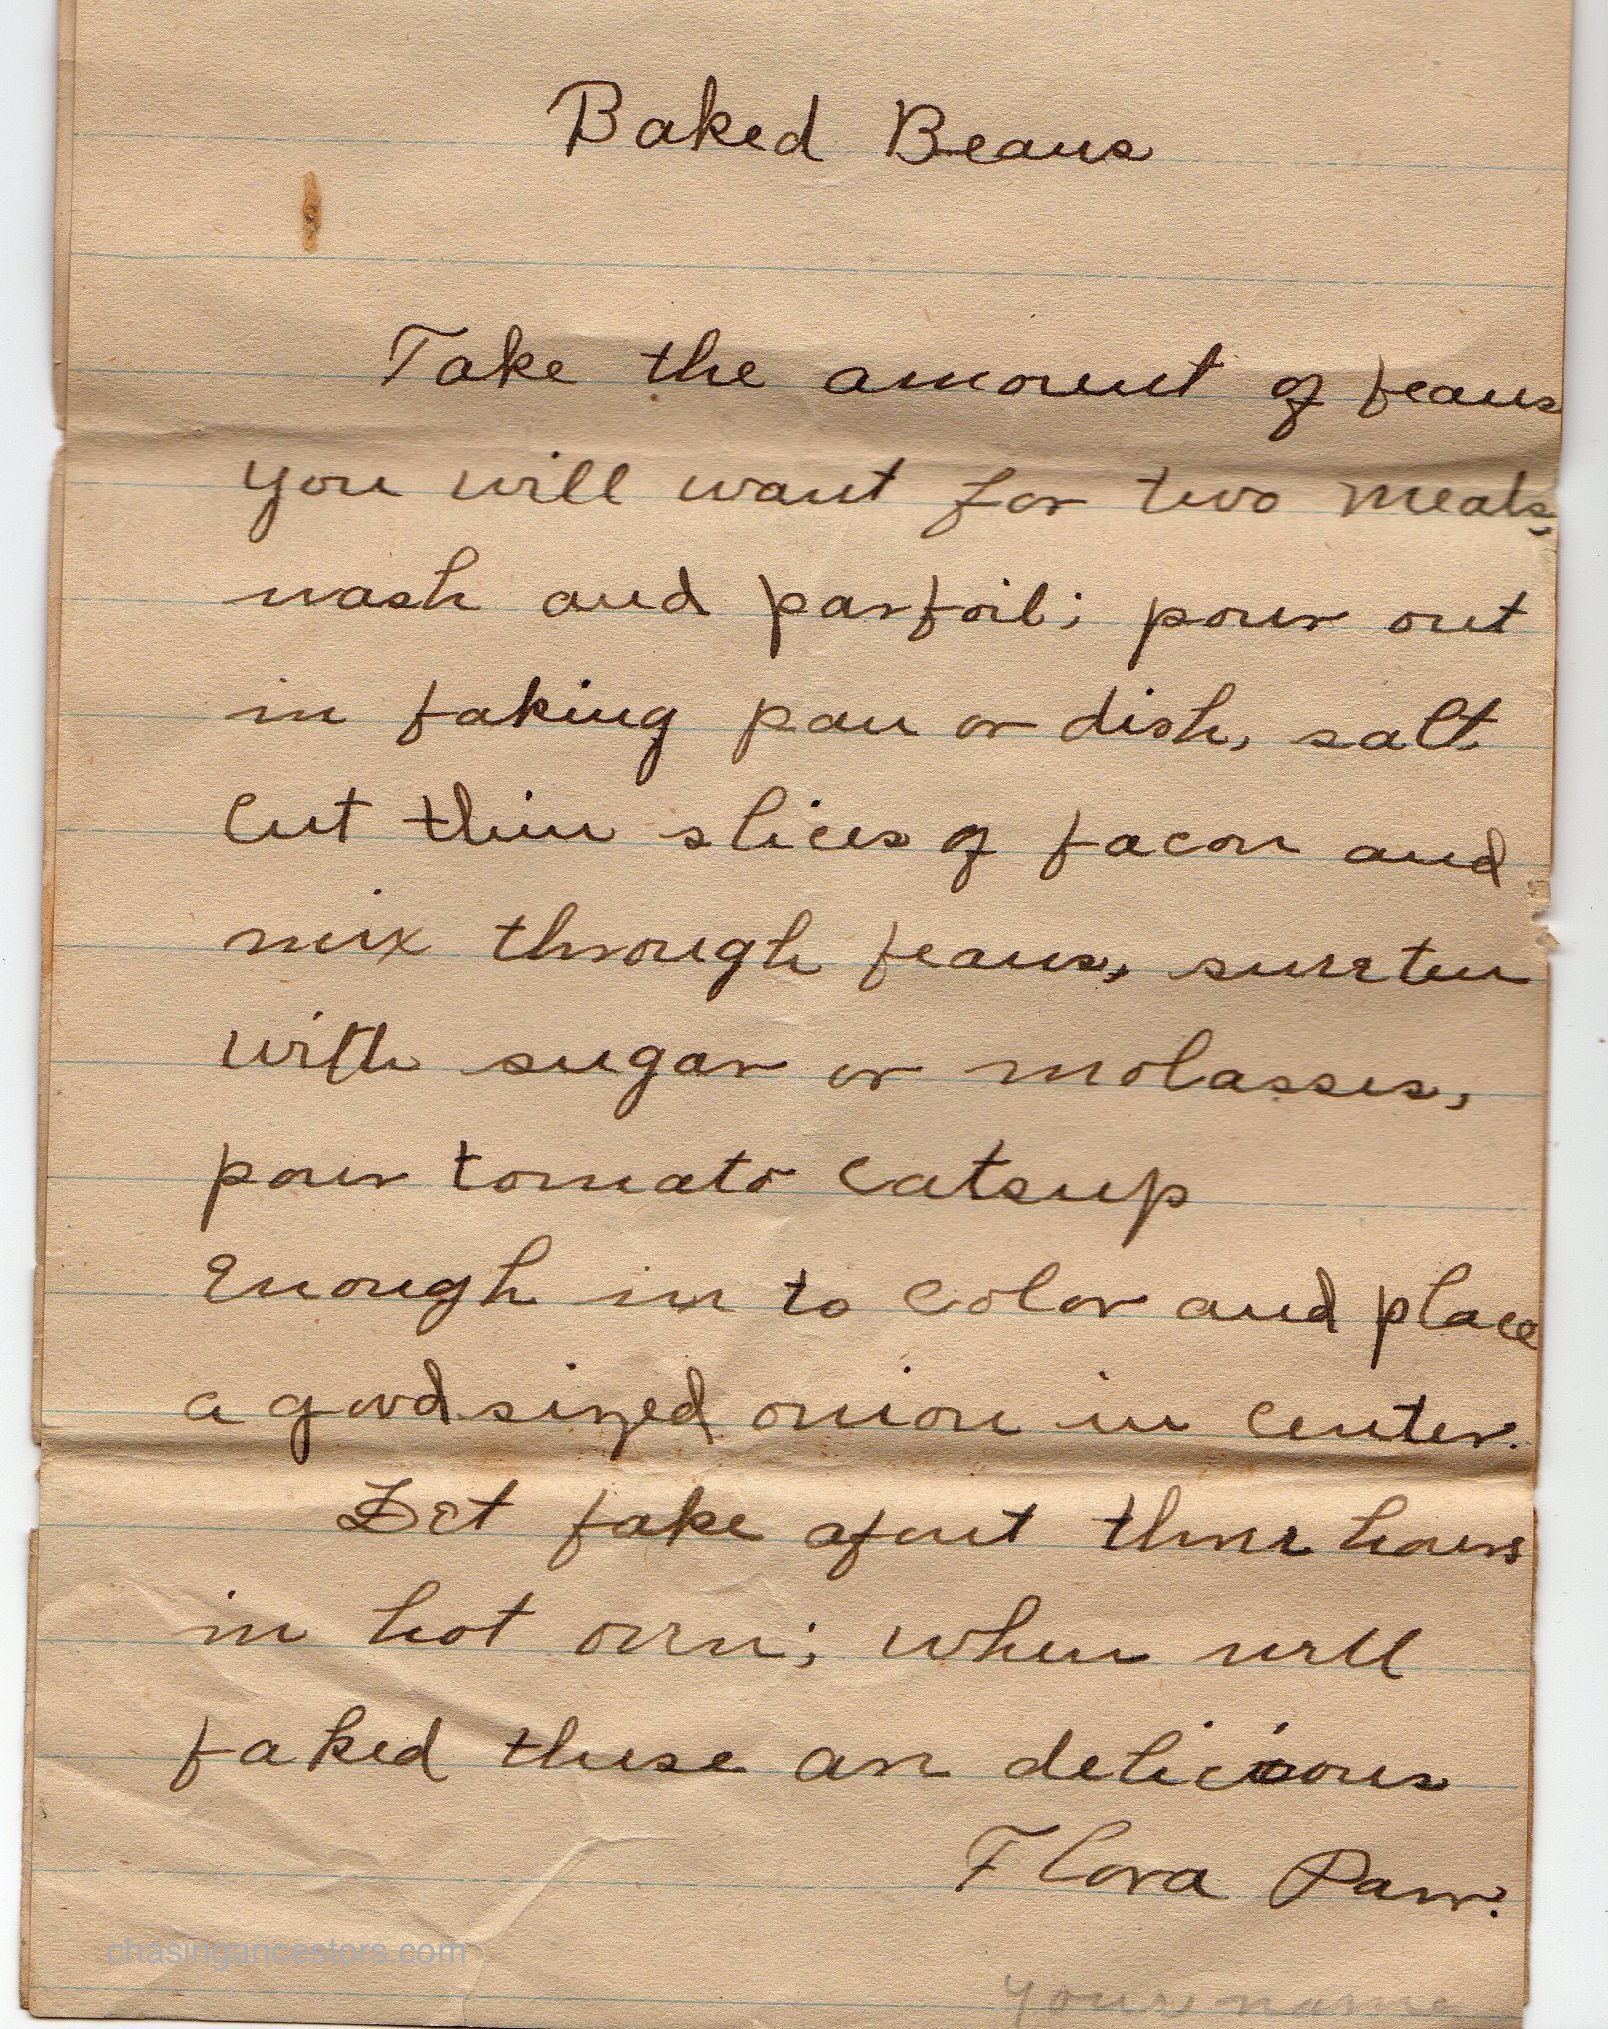 Baked Beans
Take the amount of beans
you will want for two meals,
wash and parboil; pour out
in baking pan or dish, salt
Cut thin slices of bacon and
mix through beans, sweeten
with sugar or molasses,
pour tomato catsup
Enough in to color and place
a good sized onion in center.
Let bake about three hours
in hot oven; when well
baked these are delicious
Flora Parr.
chasingancestors.com
Your name